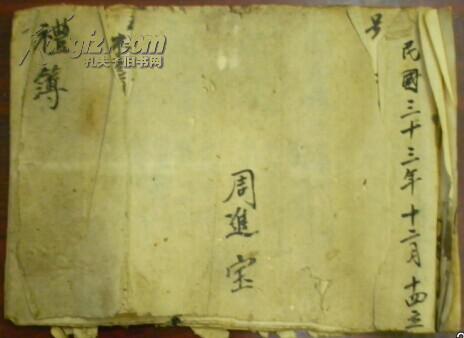 民國三十三年十二月十四立
周進宝
禮簿
孔夫子旧书网